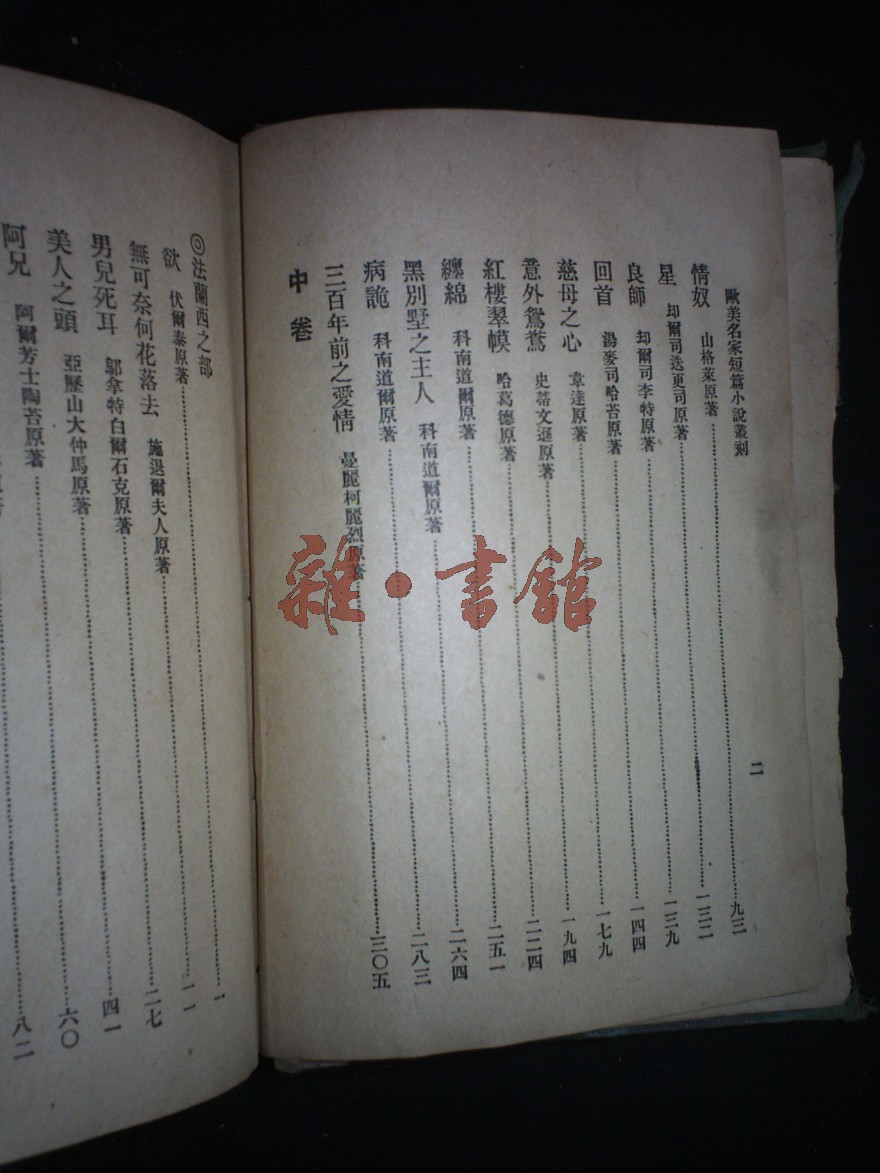 歐美名家短篇小說叢刻
二
情奴 山格萊原著 九三
星 却爾司迭更司原著 一三二
良師 却爾司李特原著 一三九
回首 湯麥司哈苔原著 一四四
慈母之心 韋達原著 一七九
意外鴛鴦 史蒂文遜原著 一九四
紅樓翠幙 哈葛德原著 二二四
纏綿 科南道爾原著 二五一
黑別墅之主人 科南道爾原著 二六四
病詭 科南道爾原著 二八三
三百年前之愛情 曼麗柯麗烈原著 三〇五
中卷
◎法蘭西之部
欲 伏爾泰原著 一
無可奈何花落去 施退爾夫人原著 一一
男兒死耳 鄔拿特白爾石克原著 二七
美人之頭 亞歷山大仲馬原著 四一
阿兄 阿爾芳士陶苔原著 六〇
八二
雜·書館